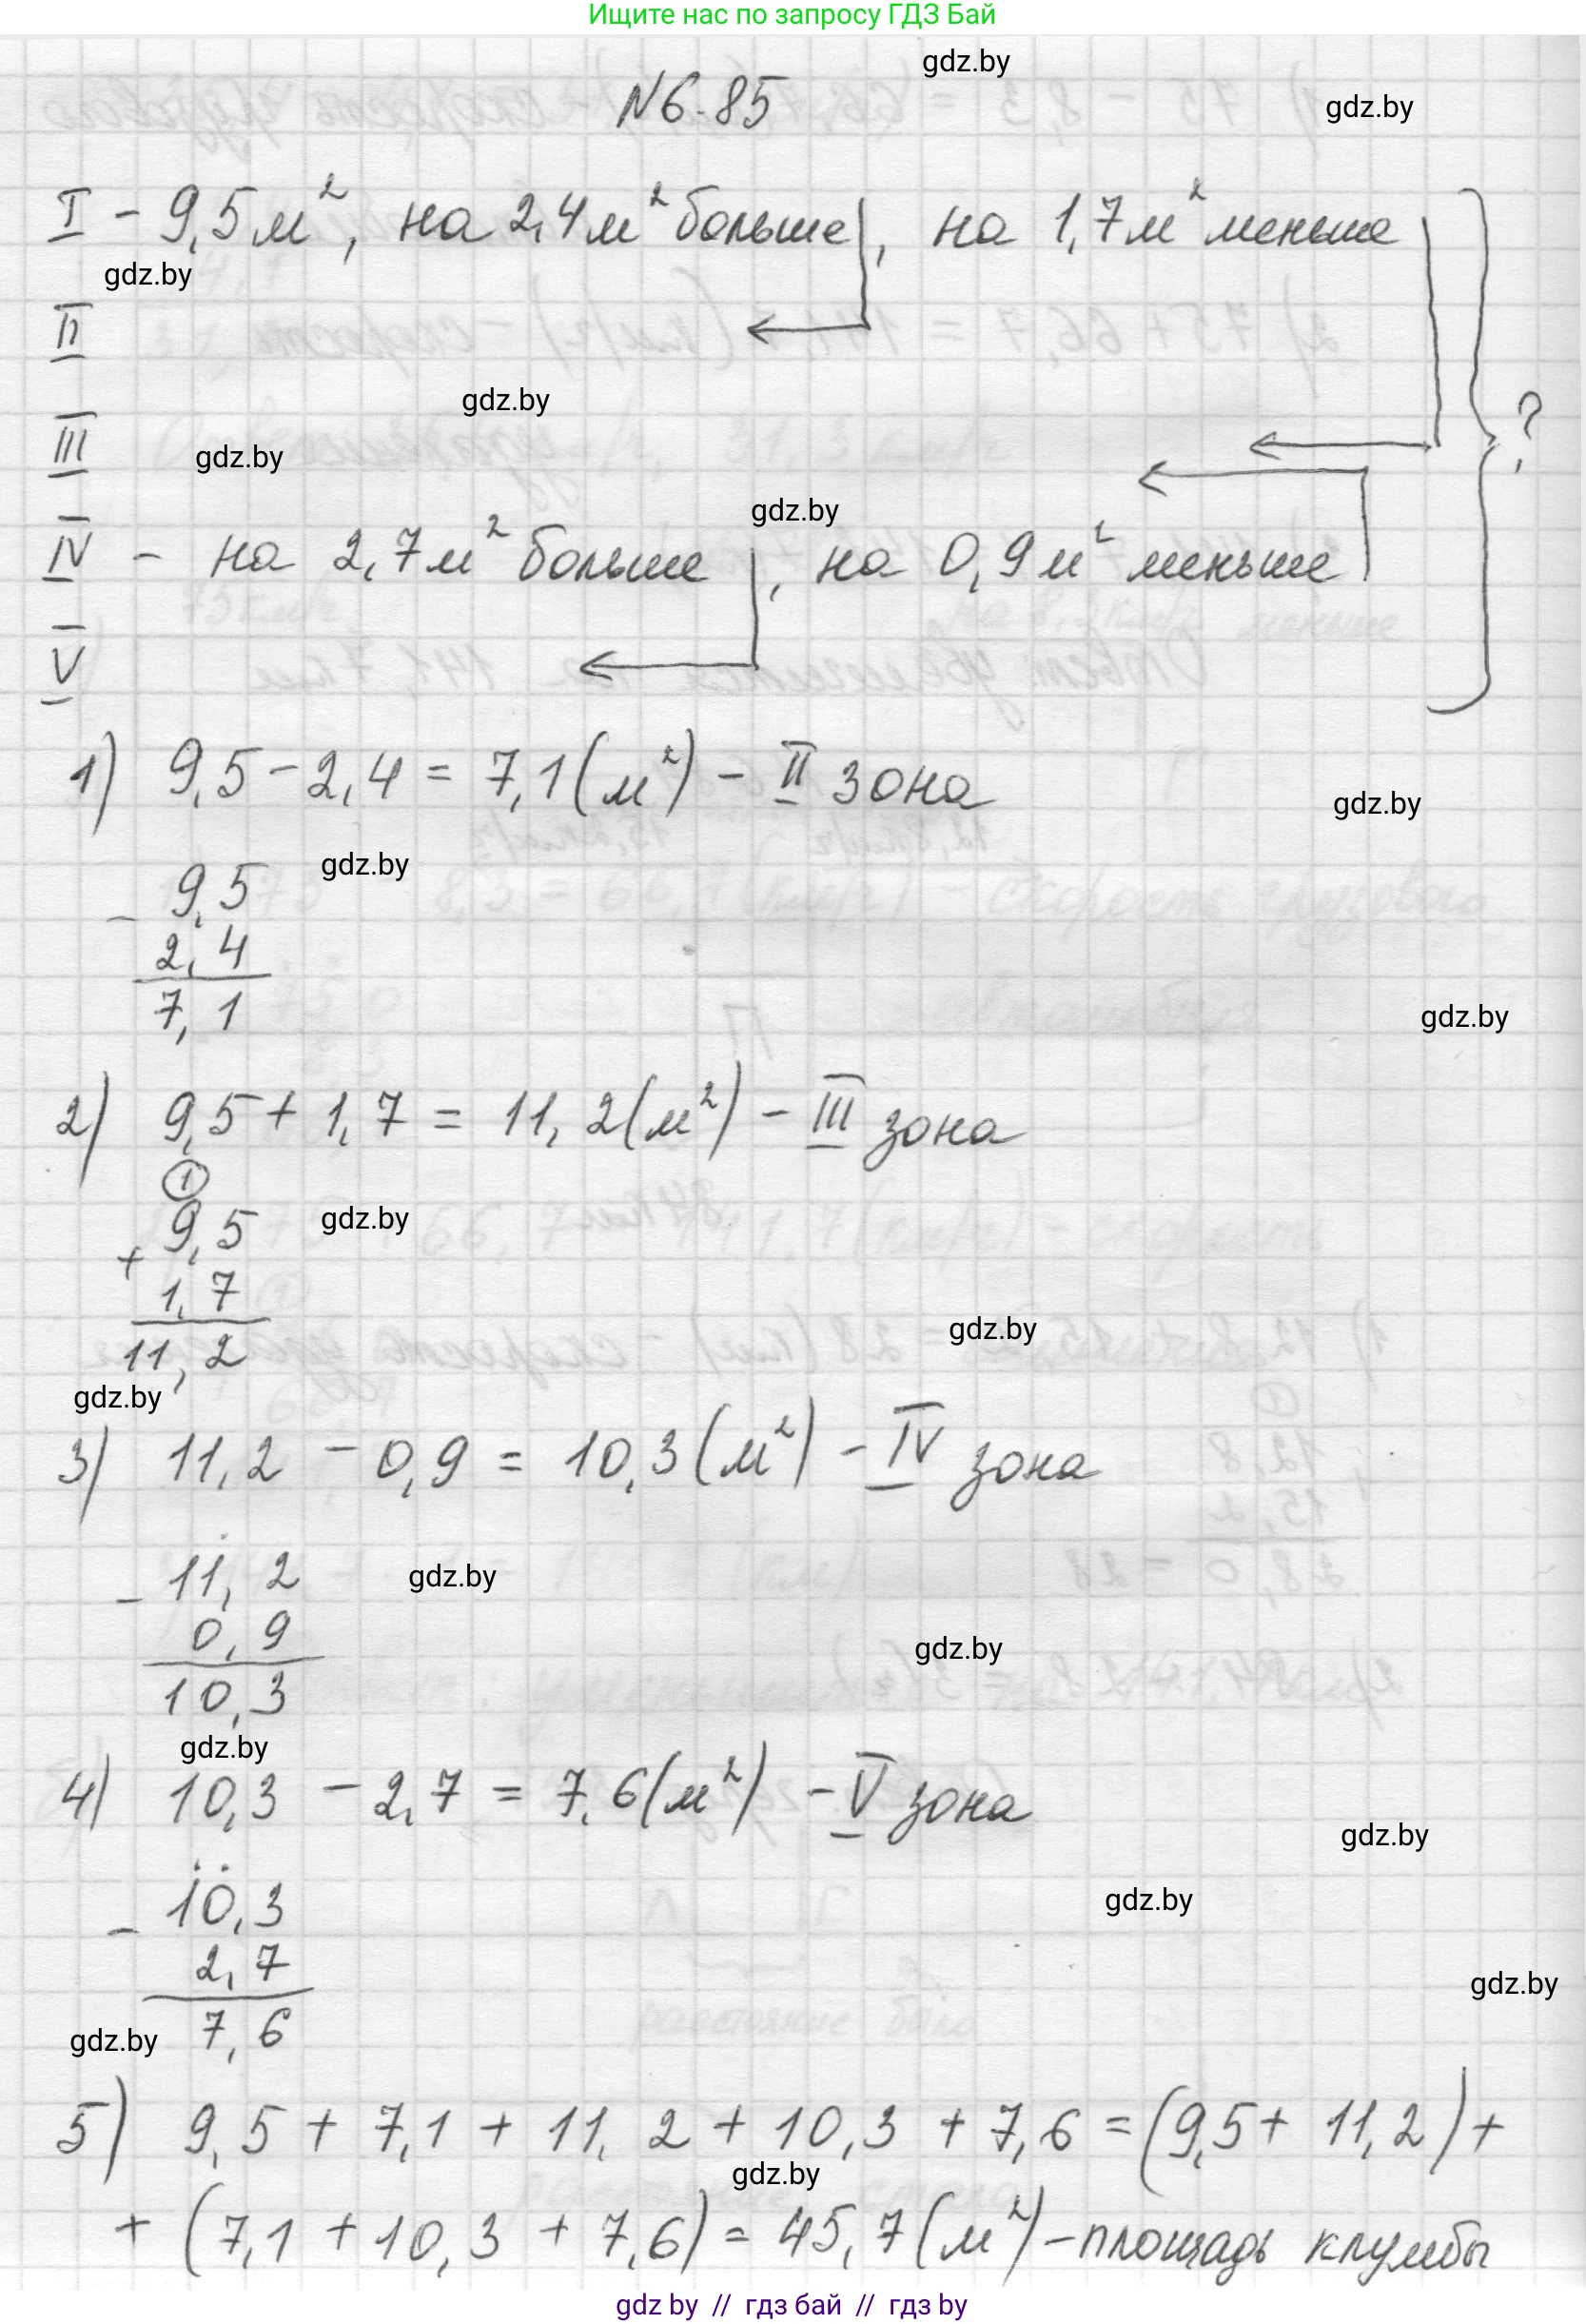 Ищите нас по запросу ГДЗ Бай
gdz.by
N6.85
gdz.by
I - 9,5 м², на 2,4 м² больше, на 1,7 м² меньше
gdz.by
II
gdz.by
?
III
gdz.by
gdz.by
IV - на 2,7 м² больше, на 0,9 м² меньше
V
1) 9,5 - 2,4 = 7,1 (м²) - II зона
gdz.by
gdz.by
- 9,5
2,4
7,1
gdz.by
2) 9,5 + 1,7 = 11,2 (м²) - III зона
1
+ 9,5
gdz.by
1,7
gdz.by
11,2
gdz.by
3) 11,2 - 0,9 = 10,3 (м²) - IV зона
- 11,2
gdz.by
0,9
gdz.by
10,3
gdz.by
4) 10,3 - 2,7 = 7,6 (м²) - V зона
gdz.by
- 10,3
gdz.by
2,7
gdz.by
7,6
gdz.by
5) 9,5 + 7,1 + 11,2 + 10,3 + 7,6 = (9,5 + 11,2) +
gdz.by
+ (7,1 + 10,3 + 7,6) = 45,7 (м²) - площадь клумбы
gdz by // гдз бай // гдз by